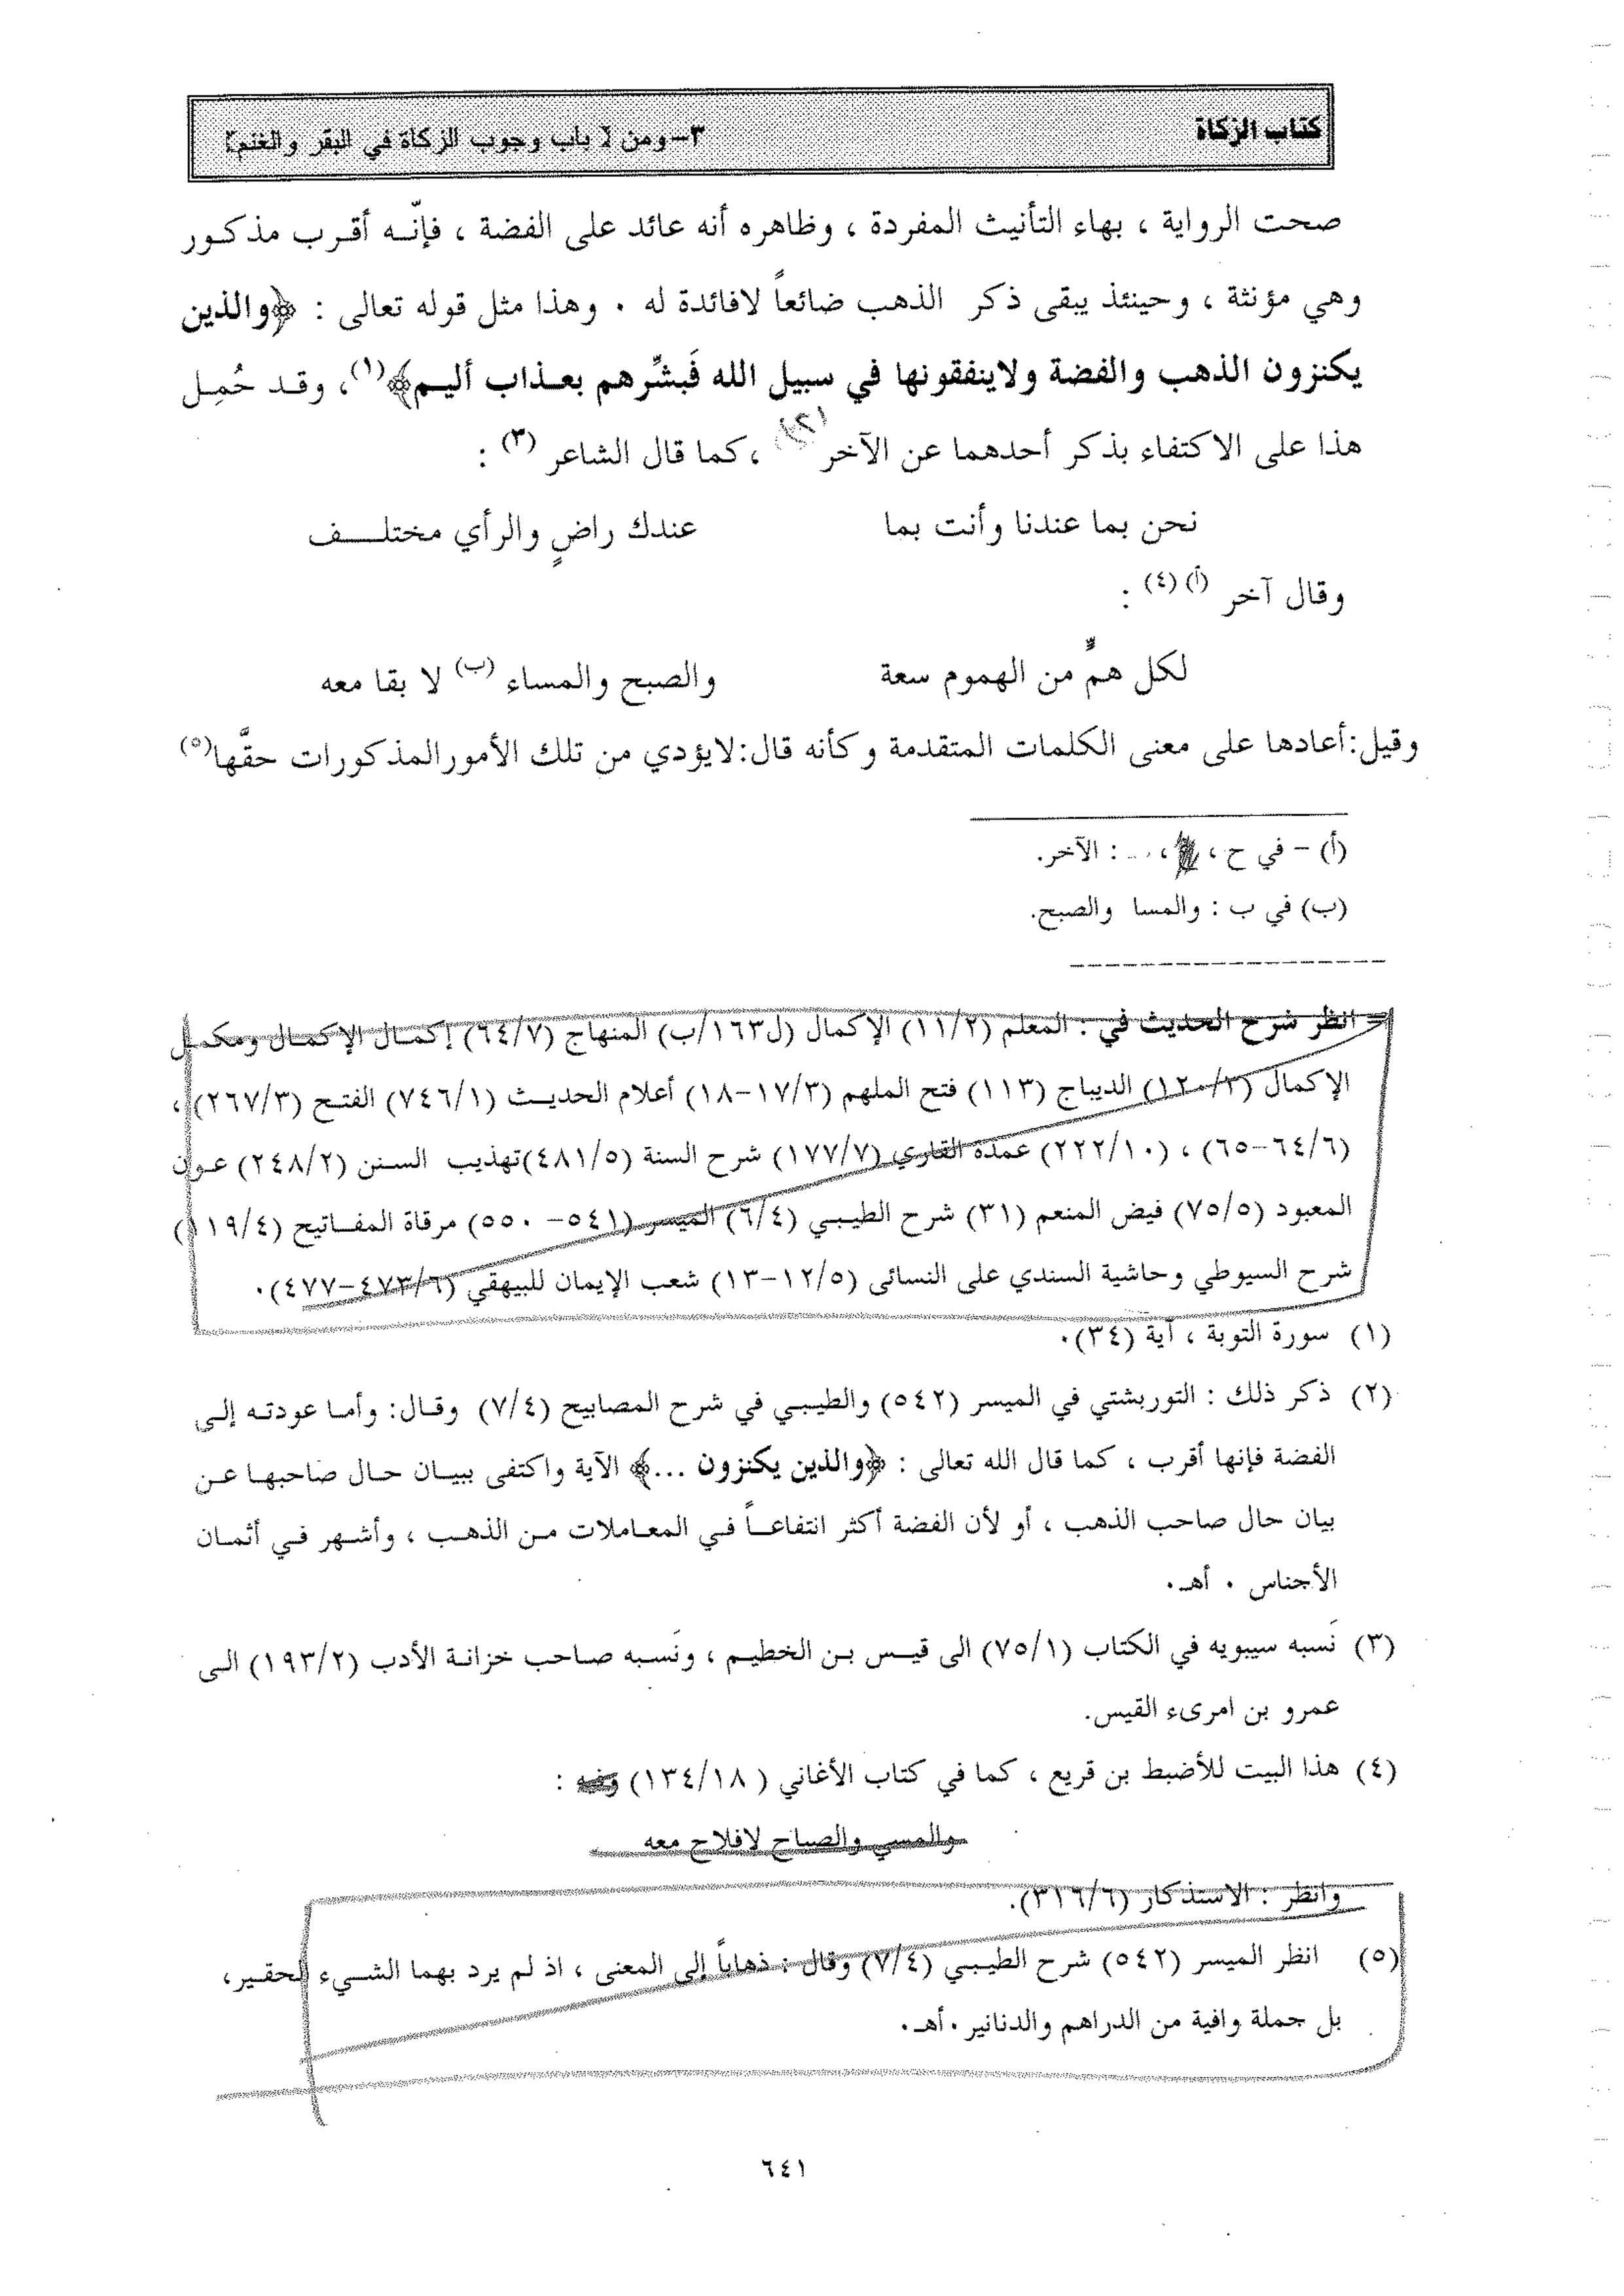 كتاب الزكاة
٣-ومن لا باب وجوب الزكاة في البقر والغنم]
صحت الرواية ، بهاء التأنيث المفردة ، وظاهره أنه عائد على الفضة ، فإنّه أقرب مذكور
وهي مؤنثة ، وحينئذ يبقى ذكر الذهب ضائعاً لافائدة له . وهذا مثل قوله تعالى : ﴿والذين
يكنزون الذهب والفضة ولاينفقونها في سبيل الله فَبشِّرهم بعذاب أليم﴾(١)، وقد حُمِل
هذا على الاكتفاء بذكر أحدهما عن الآخر (٢) ، كما قال الشاعر (٣) :
نحن بما عندنا وأنت بما عندك راضٍ والرأي مختلف
وقال آخر (أ)(٤) :
لكل همٍّ من الهموم سعة والصبح والمساء (ب) لا بقا معه
وقيل:أعادها على معنى الكلمات المتقدمة وكأنه قال:لايؤدي من تلك الأمورالمذكورات حقَّها(٥)
(أ) - في ح ، ، : الآخر.
(ب) في ب : والمسا والصبح.
= انظر شرح الحديث في : المعلم (١١/٢) الإكمال (ل١٦٣/ب) المنهاج (٦٤/٧) إكمال الإكمال ومكمل
الإكمال (١٢٠/٣) الديباج (١١٣) فتح الملهم (١٧/٣-١٨) أعلام الحديث (٧٤٦/١) الفتح (٢٦٧/٣) ،
(٦٤/٦-٦٥) ، (٢٢٢/١٠) عمدة القاري (١٧٧/٧) شرح السنة (٤٨١/٥)تهذيب السنن (٢٤٨/٢) عون
المعبود (٧٥/٥) فيض المنعم (٣١) شرح الطيبي (٦/٤) الميسر (٥٤١- ٥٥٠) مرقاة المفاتيح (١١٩/٤)
شرح السيوطي وحاشية السندي على النسائى (١٢/٥-١٣) شعب الإيمان للبيهقي (٤٧٣/٦-٤٧٧).
(١) سورة التوبة ، آية (٣٤).
(٢) ذكر ذلك : التوربشتي في الميسر (٥٤٢) والطيبي في شرح المصابيح (٧/٤) وقال: وأما عودته إلى
الفضة فإنها أقرب ، كما قال الله تعالى : ﴿والذين يكنزون ...﴾ الآية واكتفى ببيان حال صاحبها عن
بيان حال صاحب الذهب ، أو لأن الفضة أكثر انتفاعاً في المعاملات من الذهب ، وأشهر في أثمان
الأجناس . أهـ.
(٣) نَسبه سيبويه في الكتاب (٧٥/١) الى قيس بن الخطيم ، ونَسبه صاحب خزانة الأدب (١٩٣/٢) الى
عمرو بن امرىء القيس.
(٤) هذا البيت للأضبط بن قريع ، كما في كتاب الأغاني ( ١٣٤/١٨) وفيه :
والمسي والصباح لافلاح معه
وانظر : الاستذكار (٣١٦/٦).
(٥) انظر الميسر (٥٤٢) شرح الطيبي (٧/٤) وقال : ذهاباً إلى المعنى ، اذ لم يرد بهما الشيء الحقير،
بل جملة وافية من الدراهم والدنانير .أهـ.
٦٤١